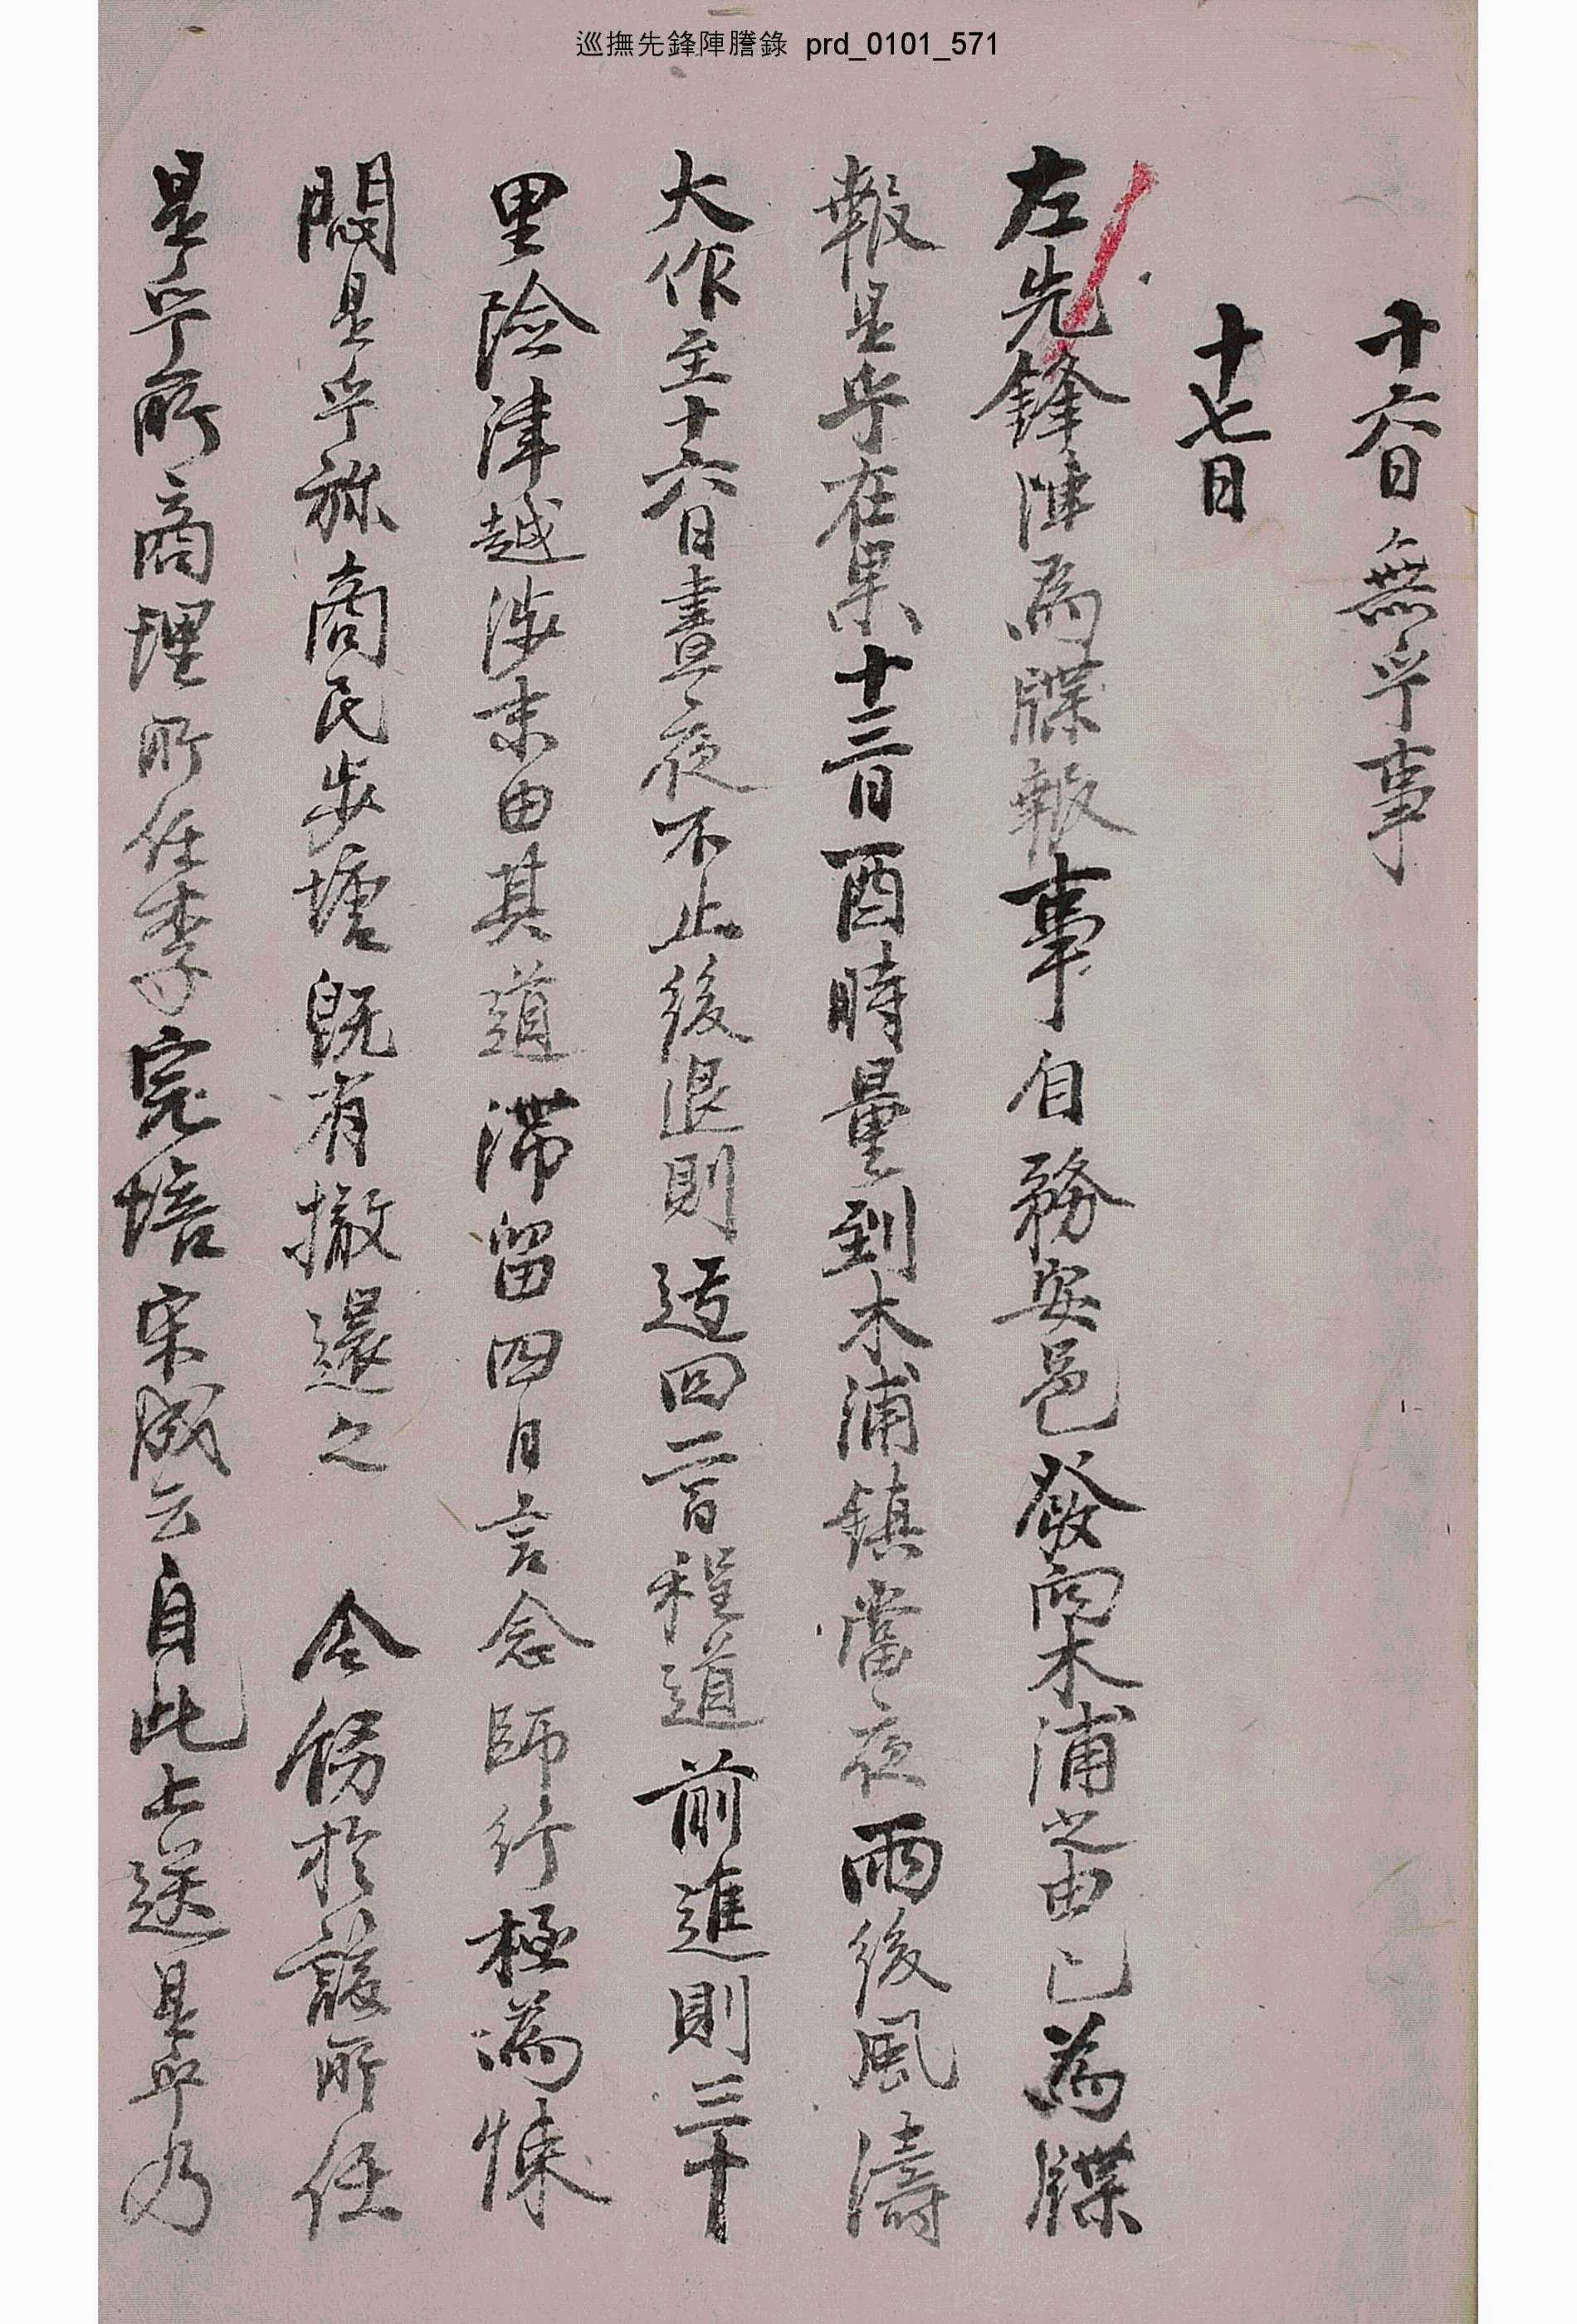 巡撫先鋒陣謄錄 prd_0101_571
十六日無乎事
十七日
左先鋒陣爲牒報事自務安邑發向木浦之由已爲牒
報是乎在果十三日酉時量到木浦鎮當夜雨後風濤
大作至十六日晝夜不止後退則迂回二百程道前進則三十
里險津越涉末由其道滯留四日言念師行極爲悚
悶是乎旀商民步擔旣有撤還之 令飭於該所任
是乎所商理所任李完培宋成云自此上送是乎乃